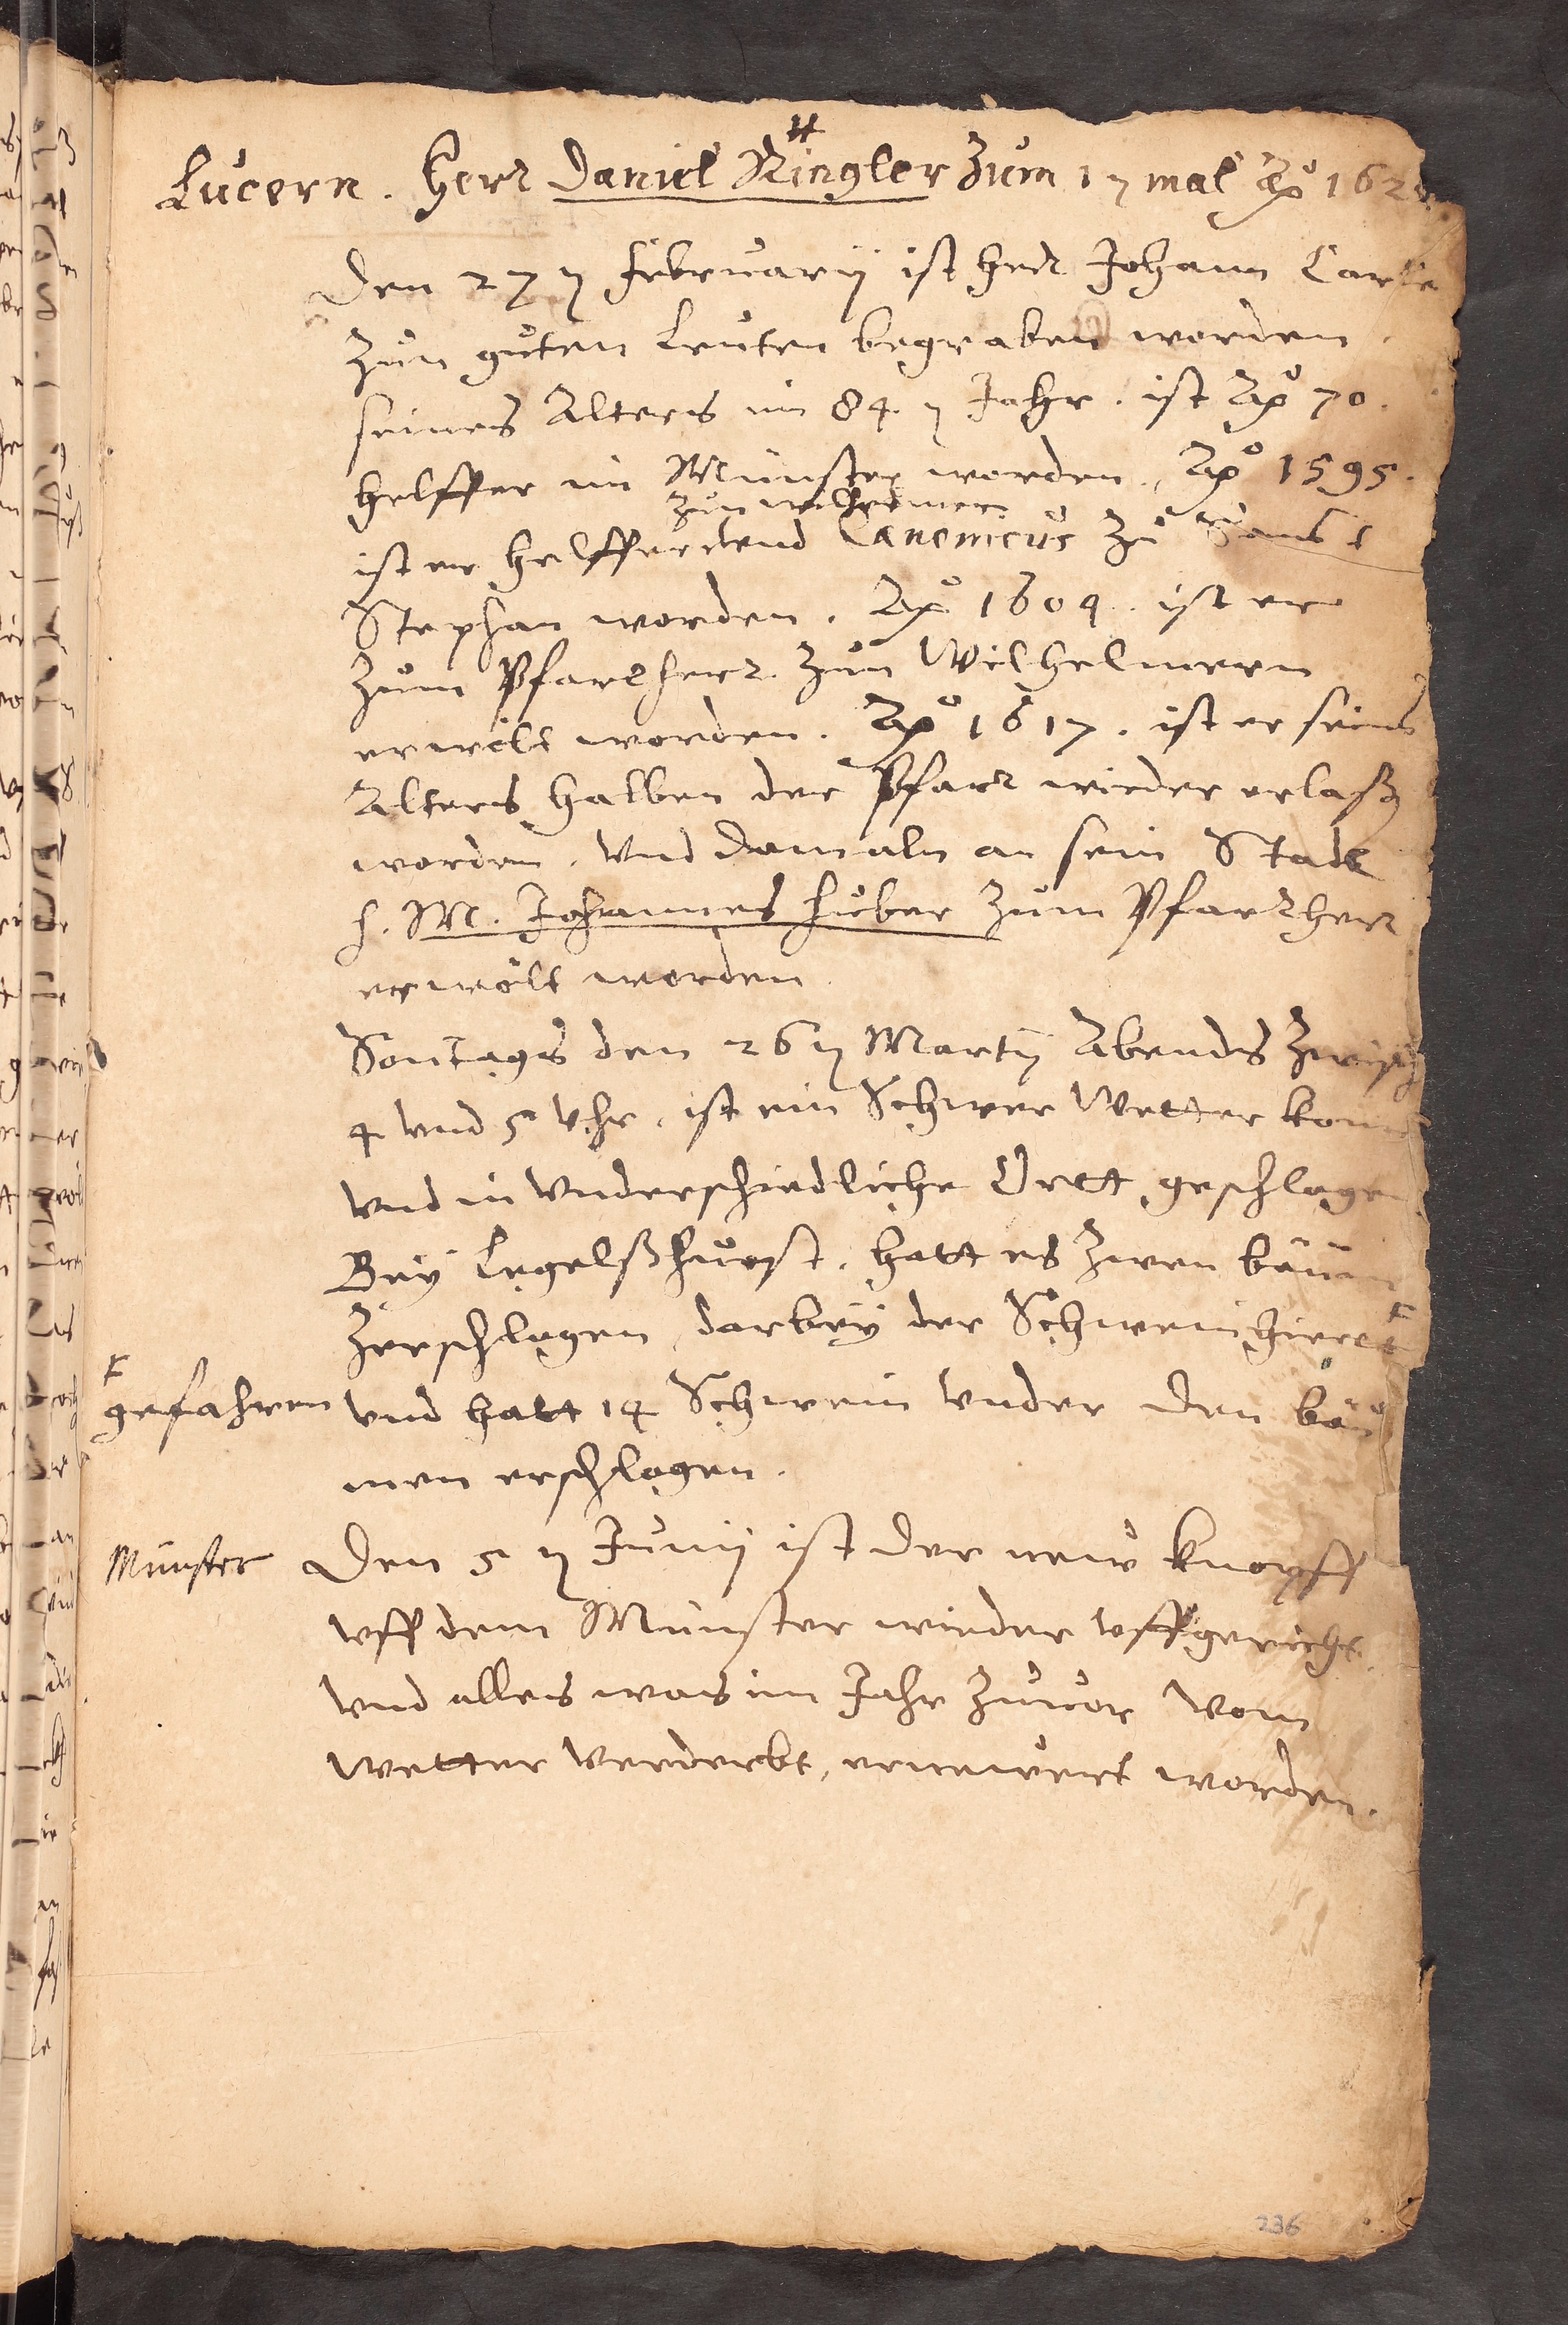 Lucern. Herr Daniel Ringler zum 17 mal Aō 162
Den 27 ꝯ februarij ist Herr Johann Carle
zun guten Leuten begraben worden.
seines Alters im 84. ꝯ Jahr. ist Aō 70.
helffer im Münster worden, Aō 1595.
zun wilhelmern
ist er helffer vnd Canonicus zu Sanct
Stephan worden. Aō 1604. ist er
zum Pfarrherr zun Wilhelmern
erwelt worden. Aō 1617. ist er seins
Alters halben der Pfarr wieder erlaß
worden. vnd damaln an sein Stadt
h. M. Johannes huber zum Pfarrherr
erwölt worden.
Sontags den 26 ꝯ Martij Abends zwisch
4 vnd 5 Vhr. ist ein Schwer Wetter kom
vnd in vnderschiedliche Ortt geschlagen
Bey Legelßhurst. hatt es zwen bäum
zerschlagen, darbey der Schweinhiertt
gefahren vnd hatt 14 Schwein vnder den bäu
men erschlagen.
Münster Den 5 ꝯ Junij ist der new knopff
vff dem Münster wieder vffgericht.
vnd alles was im Jahr zuvor vom
wetter verderbt, ernewert worden.
236